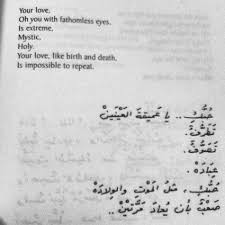 Your love,
Oh you with fathomless eyes,
Is extreme,
Mystic,
Holy.
Your love, like birth and death,
Is impossible to repeat.
حُبُّكِ.. يا عَميقةَ العَيْنَيْنْ
تَطَرُّفٌ.
تَصَوُّفٌ.
عِبَادَهْ.
حُبُّكِ، مثلُ المَوْتِ والوِلادَهْ
صَعْبٌ بأنْ يُعَادَ مَرَّتَيْنْ..